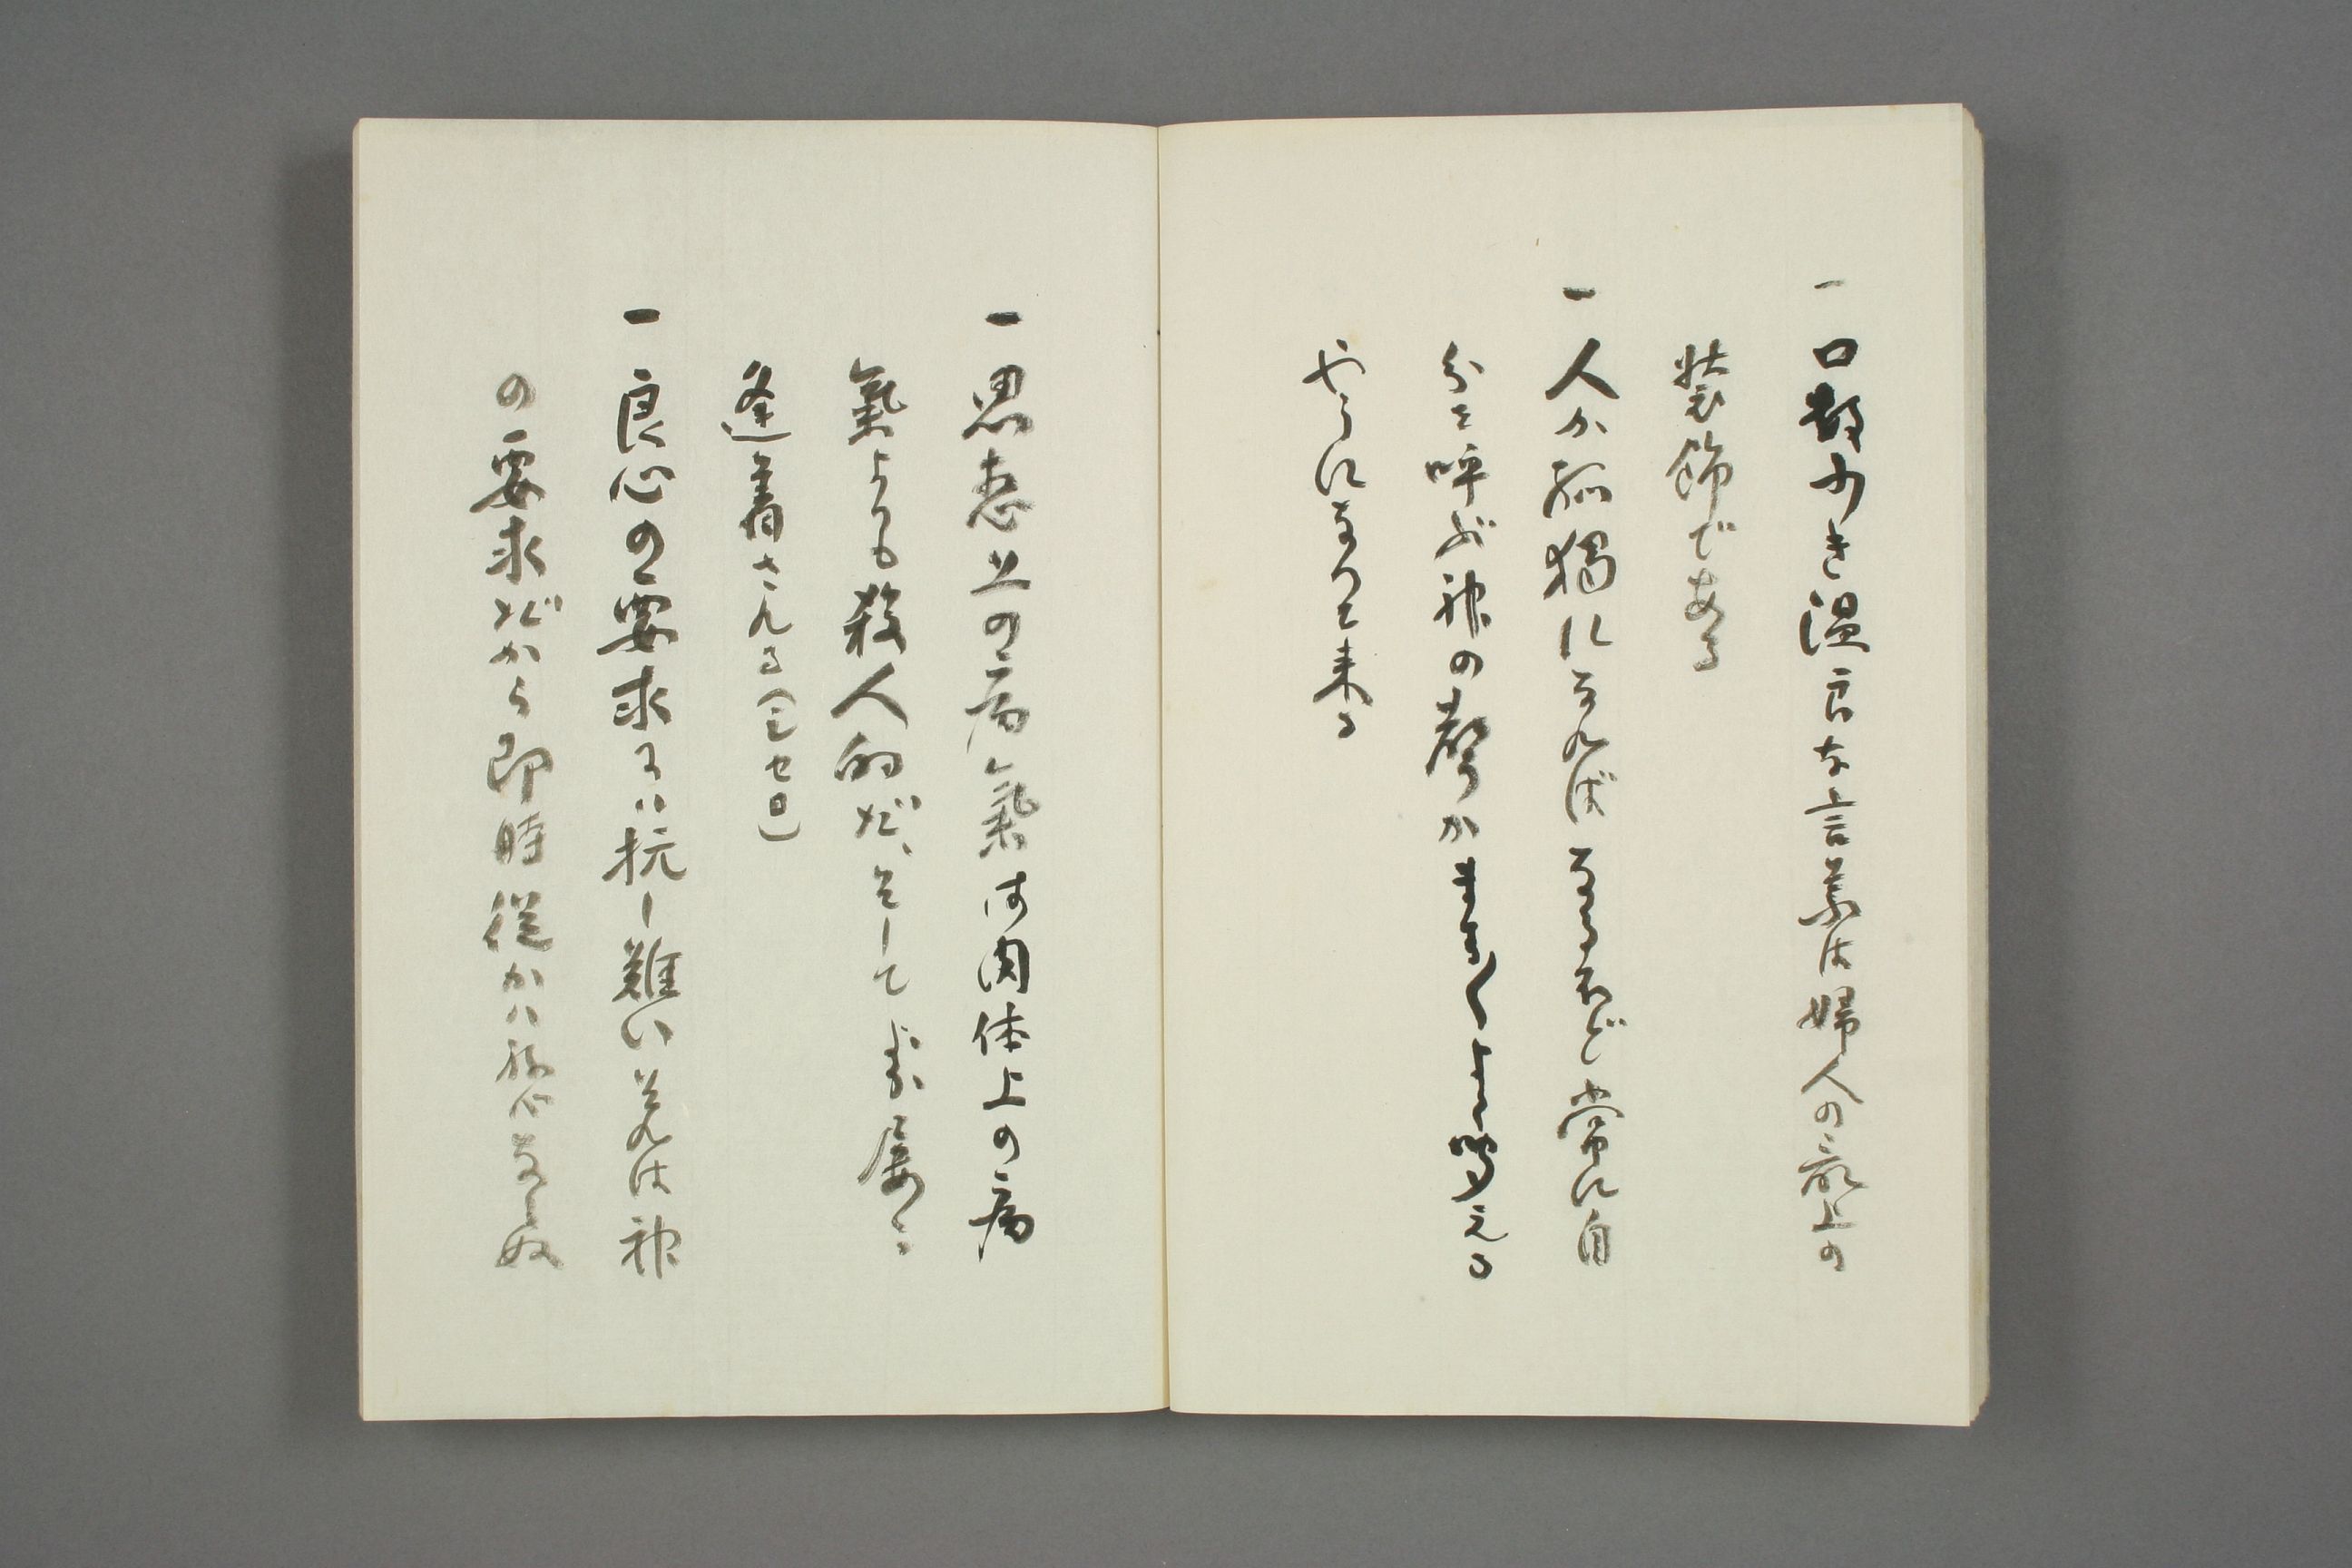 一口數少き温良な言葉は婦人の最上の
装飾である
一人か孤獨になればなるほど常に自
分を呼ぶ神の聲かます〱よく聞える
やうになつて来る
一思想上の病氣は肉体上の病
氣よりも殺人的だ、そして又屡々
逢着される（三七日）
一良心の要求には抗し難いそれは神
の要求だから即時從かはねばならぬ